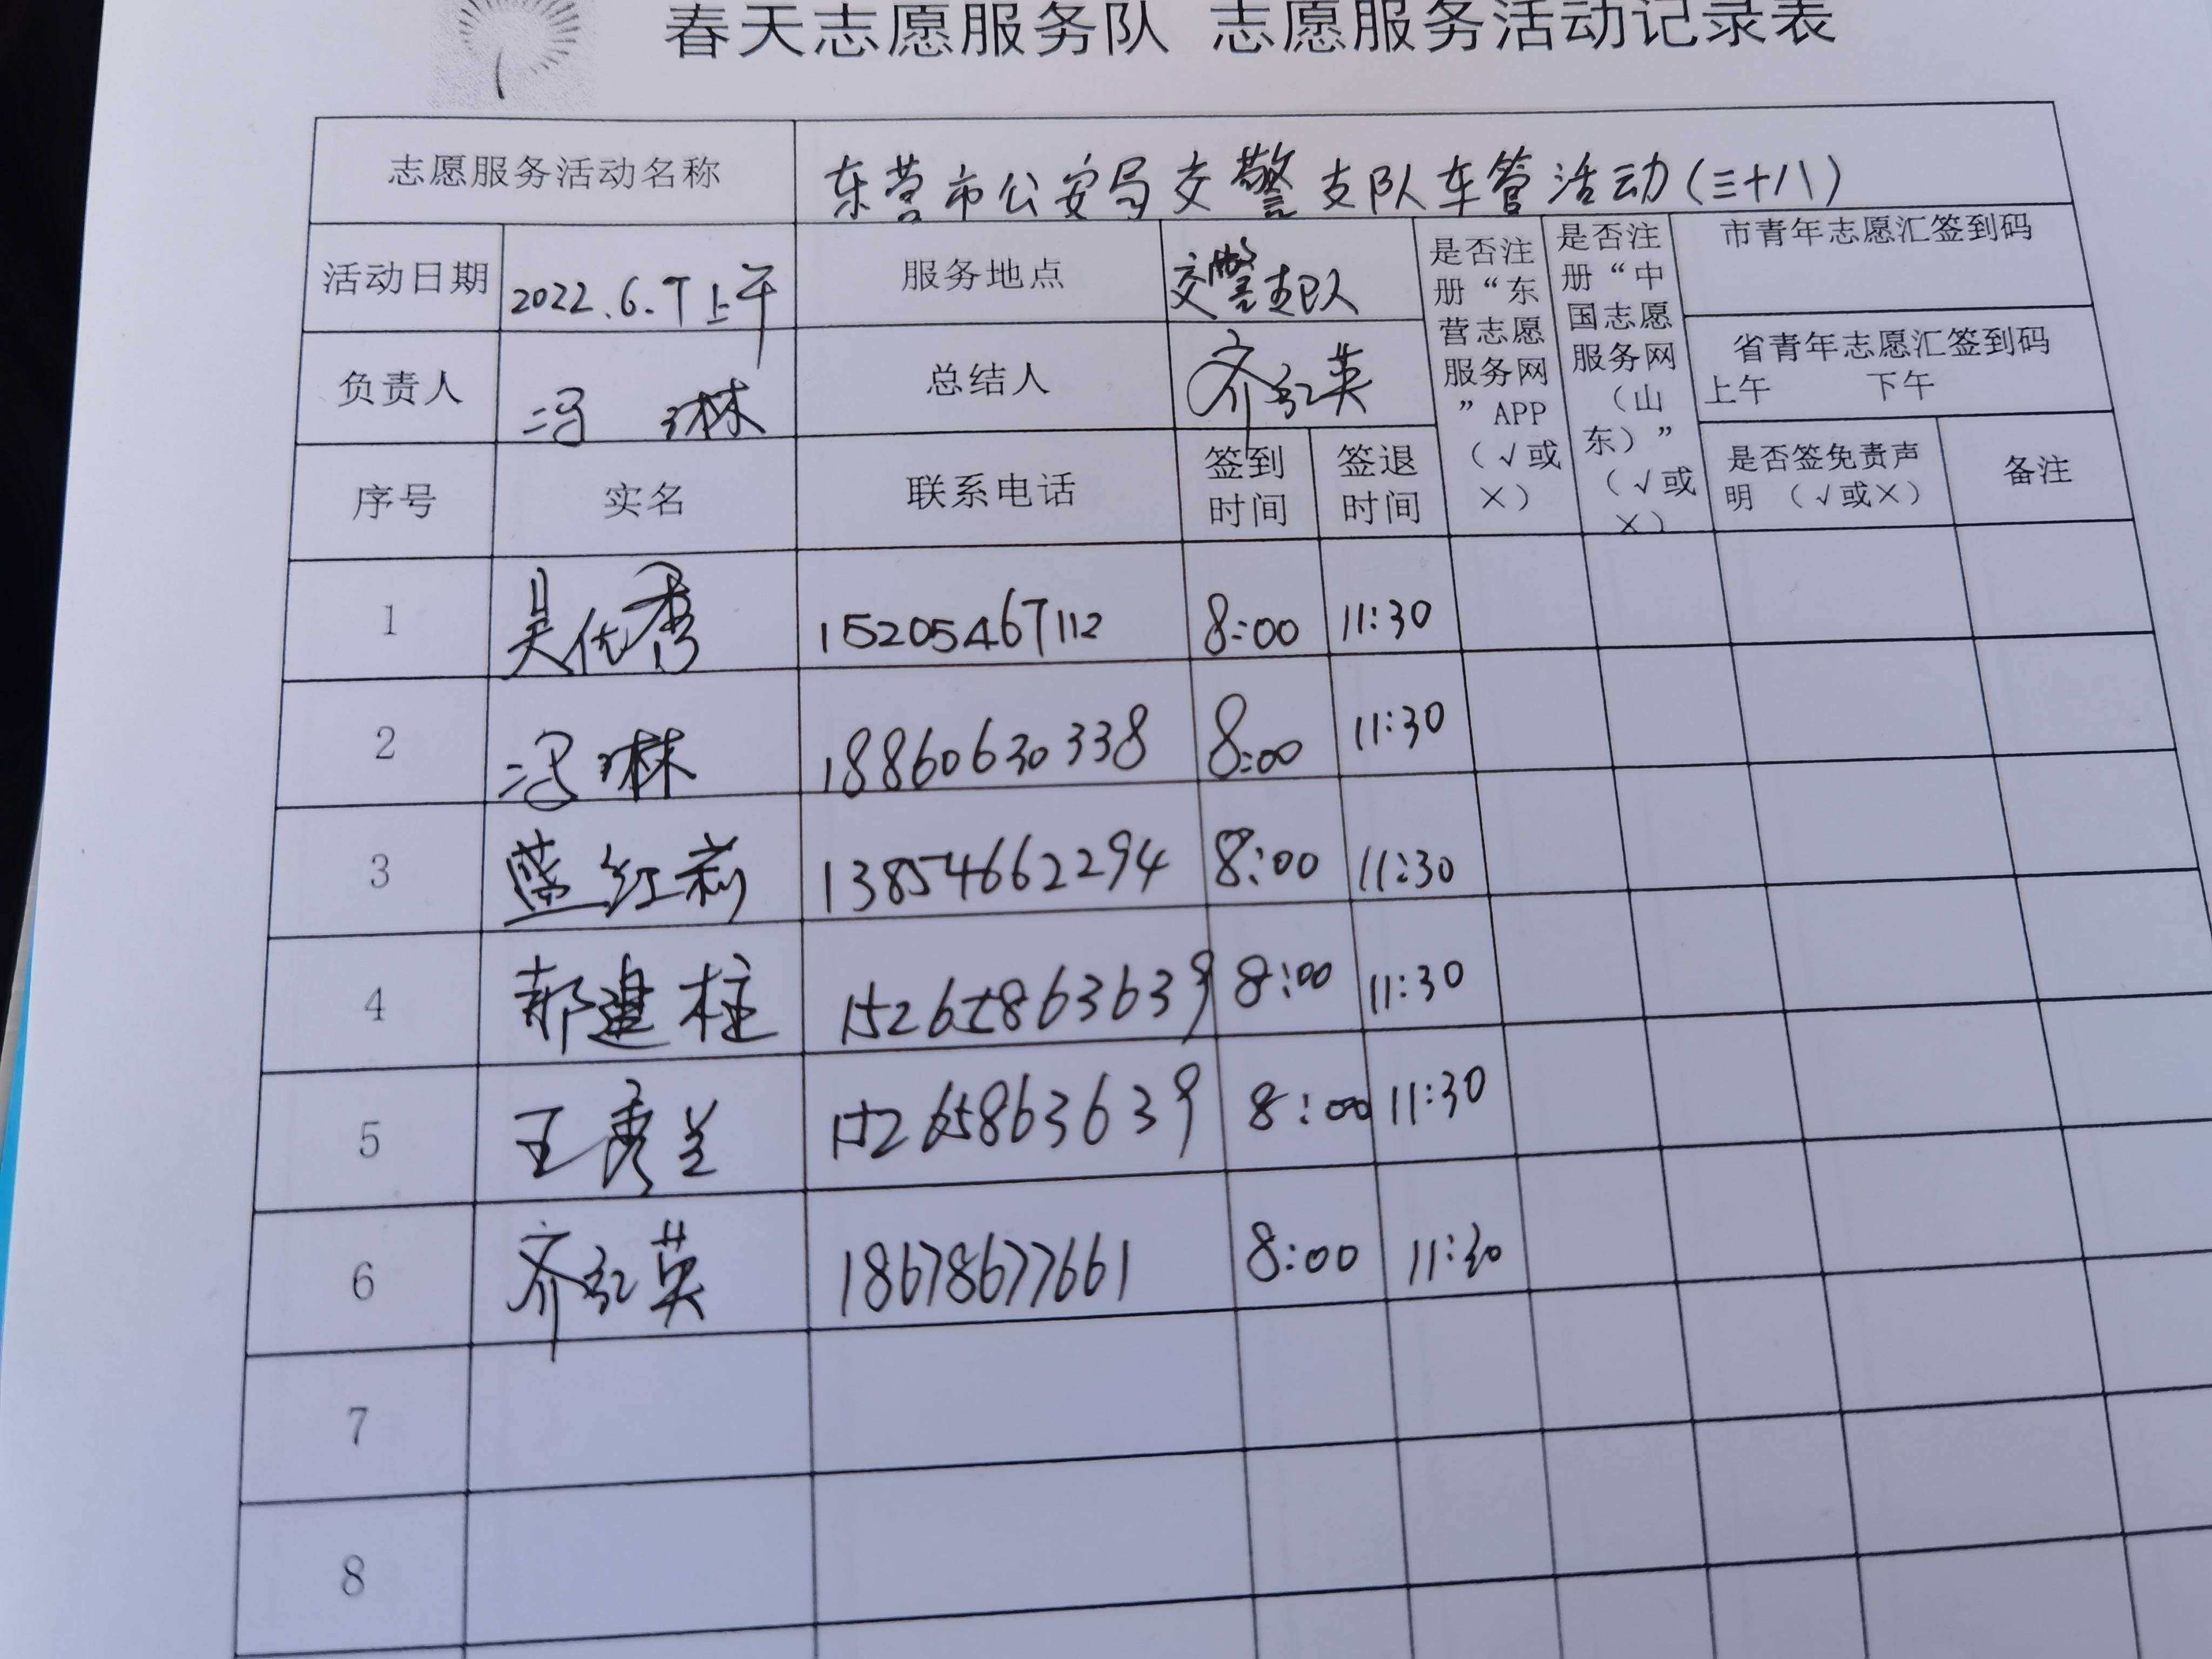 春天志愿服务队 志愿服务活动记录表
志愿服务活动名称 东营市公安局交警支队车管活动(三十八)
活动日期 2022.6.7上午 服务地点 交警支队
负责人 冯琳 总结人 齐红英
是否注册“东营志愿服务网”APP（√或×）
是否注册“中国志愿服务网（山东）”（√或×）
市青年志愿汇签到码
省青年志愿汇签到码
上午 下午
序号 实名 联系电话 签到时间 签退时间 是否签免责声明 （√或×） 备注
1 吴优秀 15205467112 8:00 11:30
2 冯琳 18860630338 8:00 11:30
3 蓝红莉 13854662294 8:00 11:30
4 郝建柱 15265863639 8:00 11:30
5 王秀兰 15265863639 8:00 11:30
6 齐红英 18678677661 8:00 11:30
7
8